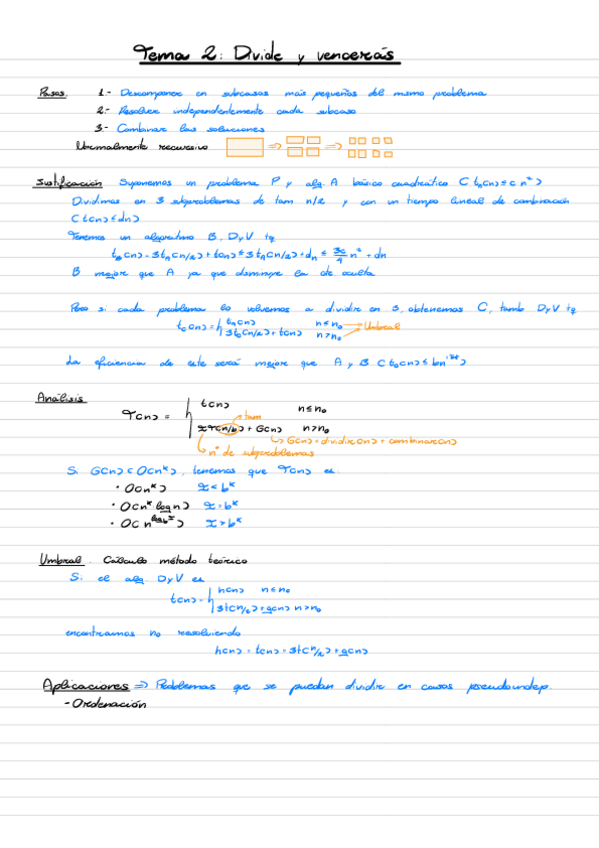 Tema 2: Divide y vencerás
Pasos: 1.- Descomponer en subcasos más pequeños del mismo problema
2.- Resolver independientemente cada subcaso
3.- Combinar las soluciones
Normalmente recursivo ⇒ ⇒
Justificación Suponemos un problema P y alg. A básico cuadrático (tA(n)≤cn²)
Dividimos en 3 subproblemas de tam n/2 y con un tiempo lineal de combinación
(t(n)≤dn)
Tenemos un algoritmo B, DyV tq
tB(n) = 3tA(n/2) + t(n) ≤ 3tA(n/2) + dn ≤ 3c/4 n² + dn
B mejor que A ya que disminuye la cte oculta
Pero si cada problema lo volvemos a dividir en 3, obtenemos C, tamb DyV tq
tC(n) = { tA(n) n≤n₀ → Umbral
3tC(n/2) + t(n) n>n₀
La eficiencia de este será mejor que A y B
Análisis
T(n) = { t(n) n≤n₀
tam
xT(n/b) + G(n) n>n₀
G(n) = dividir(n) + combinar(n)
nº de subproblemas
Si G(n) ∈ O(n^k), tenemos que T(n) es:
· O(n^k) x<b^k
· O(n^k log n) x=b^k
· O(n^(log_b x)) x>b^k
Umbral. Cálculo método teórico
Si el alg DyV es
t(n) = { h(n) n≤n₀
3t(n/2) + g(n) n>n₀
encontramos n₀ resolviendo
h(n) = t(n) = 3t(n/2) + g(n)
Aplicaciones ⇒ Problemas que se puedan dividir en casos pseudoindep.
- Ordenación